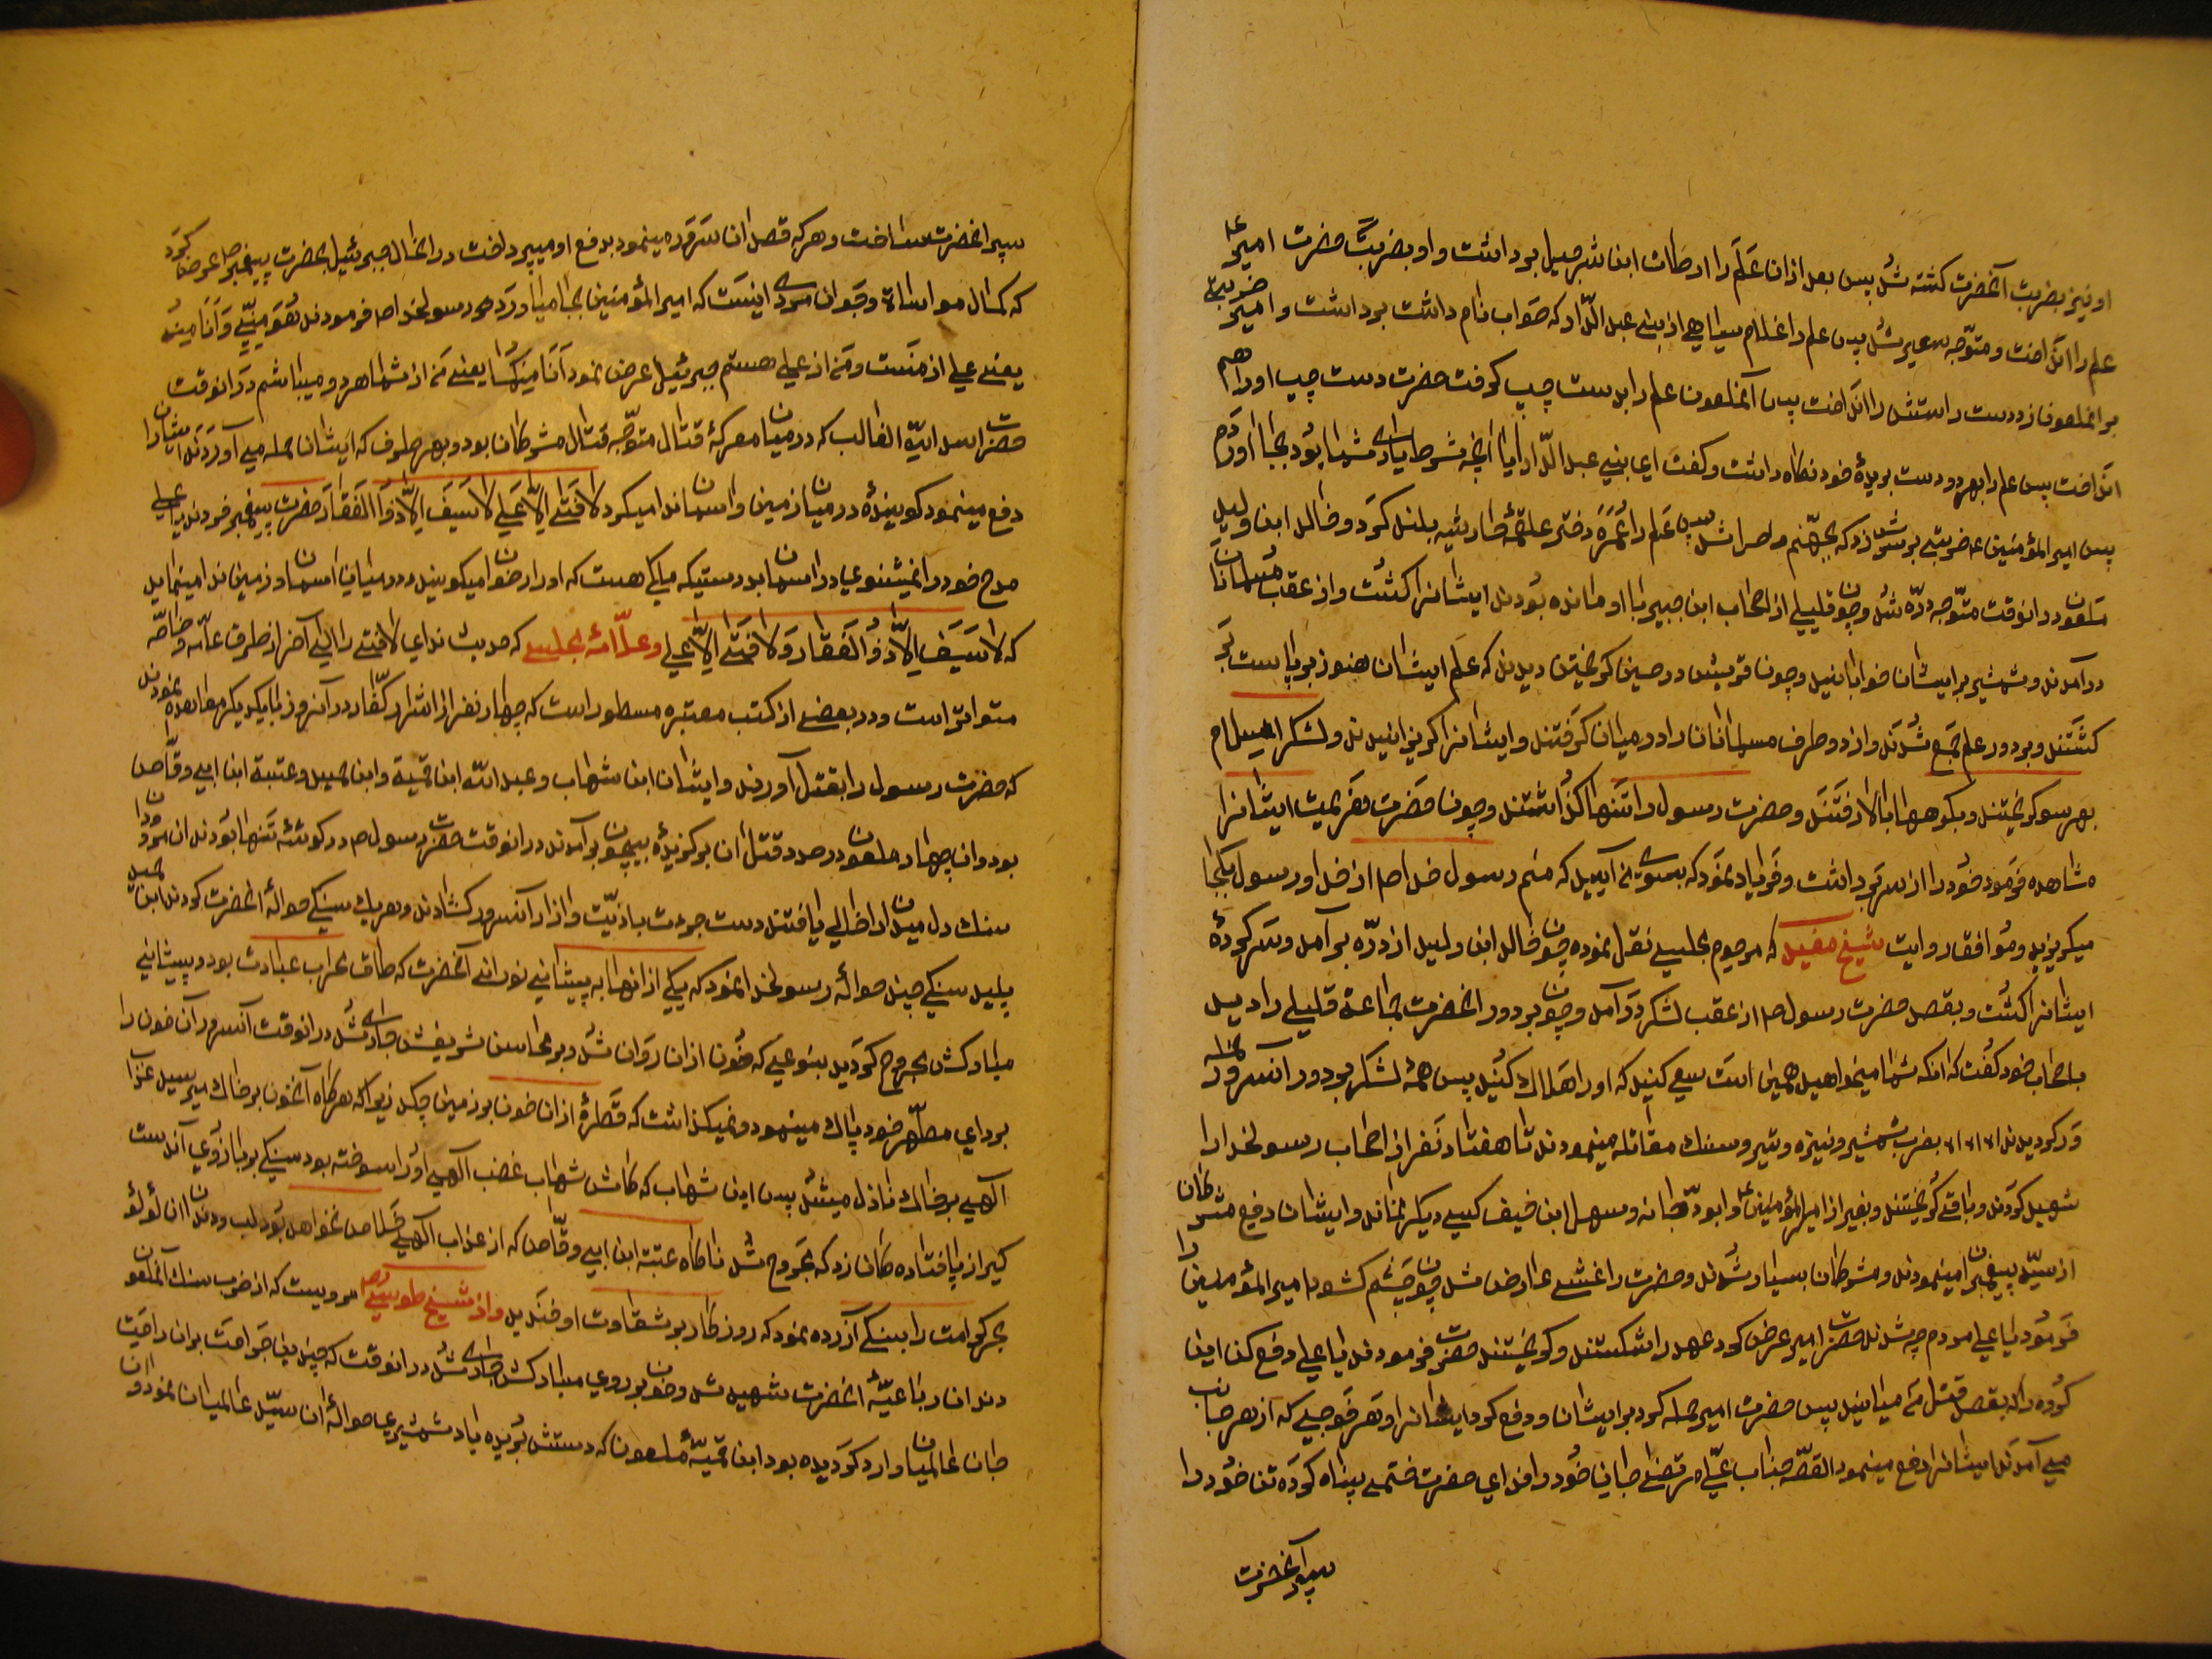 او نیز بضربت آنحضرت کشته شد پس بعد ازان علم را ارطات ابن شرحبیل برداشت و او بضربت حضرت امیر ع
علم را انداخت و متوجه سعیر شد پس علم را غلام سیاهی از بنی عبد الدار که صواب نام داشت برداشت و امیر ضربتی
بر انملعون زد دست راستش را انداخت پس آنملعون علم را بدست چپ گرفت حضرت دست چپ او را هم
انداخت پس علم را بهر دو دست بریدهٔ خود نگاه داشت و گفت ای بنی عبد الدار ایا انچه شرط یاری شما بود بجا اوردم
پس امیر المؤمنین ع ضربتی بر سرش زد که بجهنم واصل شد پس علم را عمره دختر علقمهٔ حارثیه بلند کرد و خالد ابن ولید
ملعون در انوقت متوجه دره شد و چون قلیلی از اصحاب ابن جبیر با او مانده بودند ایشانرا کشت و از عقب مسلمانان
درآمدند و شمشیر بر ایشان خوابانید و چون قریش در حین گریختن دیدند که علم ایشان هنوز بر پاست بر
گشتند و بر دور علم جمع شدند و از دو طرف مسلمانان را در میان گرفتند و ایشانرا گریزانیدند و لشکر اسلام
بهر سو گریختند و بکوهها بالا رفتند و حضرت رسول را تنها گذاشتند و چون حضرت هزیمت ایشانرا
مشاهده فرمود خود را از سر برداشت و فریاد نمود که بسوی من آیید که منم رسول خدا ص از خدا و رسول بکجا
میگریزید و موافق روایت شیخ مفید که مرحوم مجلسی نقل نموده چون خالد ابن ولید از دره برآمد و سر کردهٔ
ایشانرا کشت و بقصد حضرت رسول ص از عقب لشکر درآمد و چون بر دور انحضرت جماعة قلیلی را دید
باصحاب خود گفت که انکه شما میخواهید همین است سعی کنید که او را هلاک کنید پس همهٔ لشکر بر دور انسرور حمله
ور گردیدند بضرب شمشیر و نیزه و تیر و سنک مقاتله مینمودند تا هفتاد نفر از اصحاب رسولخدا را
شهید کردند و باقی گریختند و بغیر از امیر المؤمنین ع و ابو دجانه و سهل ابن حنیف کسی دیگر نماند و ایشان دفع مشرکان
از سید پیغمبران مینمودند و مشرکان بسیار شدند و حضرت را غشی عارض شد چون چشم گشود امیر المؤمنین را
فرمود یا علی مردم چه شدند حضرت امیر عرض کرد عهد را شکستند و گریختند حضرت فرمودند یا علی دفع کن این
گروه را که بقصد قتل من میایند پس حضرت امیر حمله کرد بر ایشان و دفع کرد ایشانرا و هر فوجی که از هر جانب
می آمدند ایشانرا دفع مینمود القصه جناب علی مرتضی جان خود را فدای حضرت ختمی پناه کرده تن خود را
سپر آنحضرت
سپر انحضرت ساخت و هر که قصد ان سرور مینمود بدفع او میپرداخت در انحال جبرئیل بحضرت پیغمبر ص عرض کرد
که کمال مواساة و جوان مردی اینست که امیر المؤمنین بجا میاورد رسولخدا ص فرمودند هو منی و انا منه
یعنی علی از منست و من از علی هستم جبرئیل عرض نمود انا منکما یعنی من از شما هر دو میباشم در انوقت
حضرت اسد الله الغالب که در میان معرکهٔ قتال متوجه قتال مشرکان بود و بهر طرف که ایشان حمله می آوردند ایشانرا
دفع مینمود گویندهٔ در میان زمین و اسمان ندا میکرد لا فتی الا علی لا سیف الا ذو الفقار حضرت پیغمبر فرمودند یا علی
مدح خود را نمیشنوی در اسمان بدرستیکه ملکی هست که او را رضوان میگویند در میان اسمان و زمین ندا مینماید
که لا سیف الا ذو الفقار و لا فتی الا علی و علامه مجلسی که حدیث ندای لا فتی را الی آخر از طرق عامه و خاصه
متواتر است و در بعضی از کتب معتبره مسطور است که چهار نفر از اشرار کفار در آنروز با یکدیگر معاهده نمودند
که حضرت رسول را بقتل آورند و ایشان ابن شهاب و عبد الله ابن قمیة و ابن حمید و عتبة ابن ابی وقاص
بود و ان چهار ملعون در صدد قتل ان برگزیدهٔ بیچون برآمدند در انوقت حضرت رسول ص در گوشهٔ تنها بودند ان مردودان
سنك دل میدان را خالی یافتند دست جرءت باذیت و ازار آنسرور گشادند و هر یك سنگی حوالهٔ انحضرت کردند ابن حمید
پلید سنگی چند حوالهٔ رسولخدا نمود که یکی از انها به پیشانی نورانی آنحضرت که طاق محراب عبادت بود و پیشانی
مبارکش مجروح گردید بنوعی که خون ازان روان شد و بر محاسن شریفش جاری شد در انوقت آنسرور آن خون را
بردای مطهر خود پاك مینمود و نمیگذاشت که قطرهٔ ازان خون بر زمین چکد زیرا که هر گاه آنخون بر خاك میرسید عذاب
الهی بر خاك نازل میشد پس ابن شهاب که کاش شهاب غضب الهی او را سوخته بود سنگی بر بازوی آندست
گیر از پا افتاده کان زد که مجروح شد ناگاه عتبة ابن ابی وقاص که از عذاب الهی خلاص نخواهد بود لب و دندان ان لؤلؤ
بحر کرامت را بسنگی آزرده نمود که روزگار بر شقاوت او خندید و از شیخ طوسی رحمه مرویست که از ضرب سنك انملعون
دندان رباعیهٔ انحضرت شهید شد و خون بر روی مبارکش جاری شد در انوقت که چندین جراحت بران راحت
جان عالمیان وارد گردیده بود ابن قمیهٔ ملعون که دستش بریده باد شمشیری حوالهٔ ان سید عالمیان نمود و ان